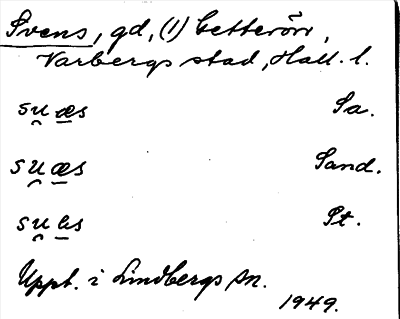 Svens, gd, (1) Getterön,
Varbergs stad, Hall. l.
su̯æ̱s Sa.
su̯æ̱s Sand.
su̯ Pt.
Uppt. i Lindbergs sn.
1949.